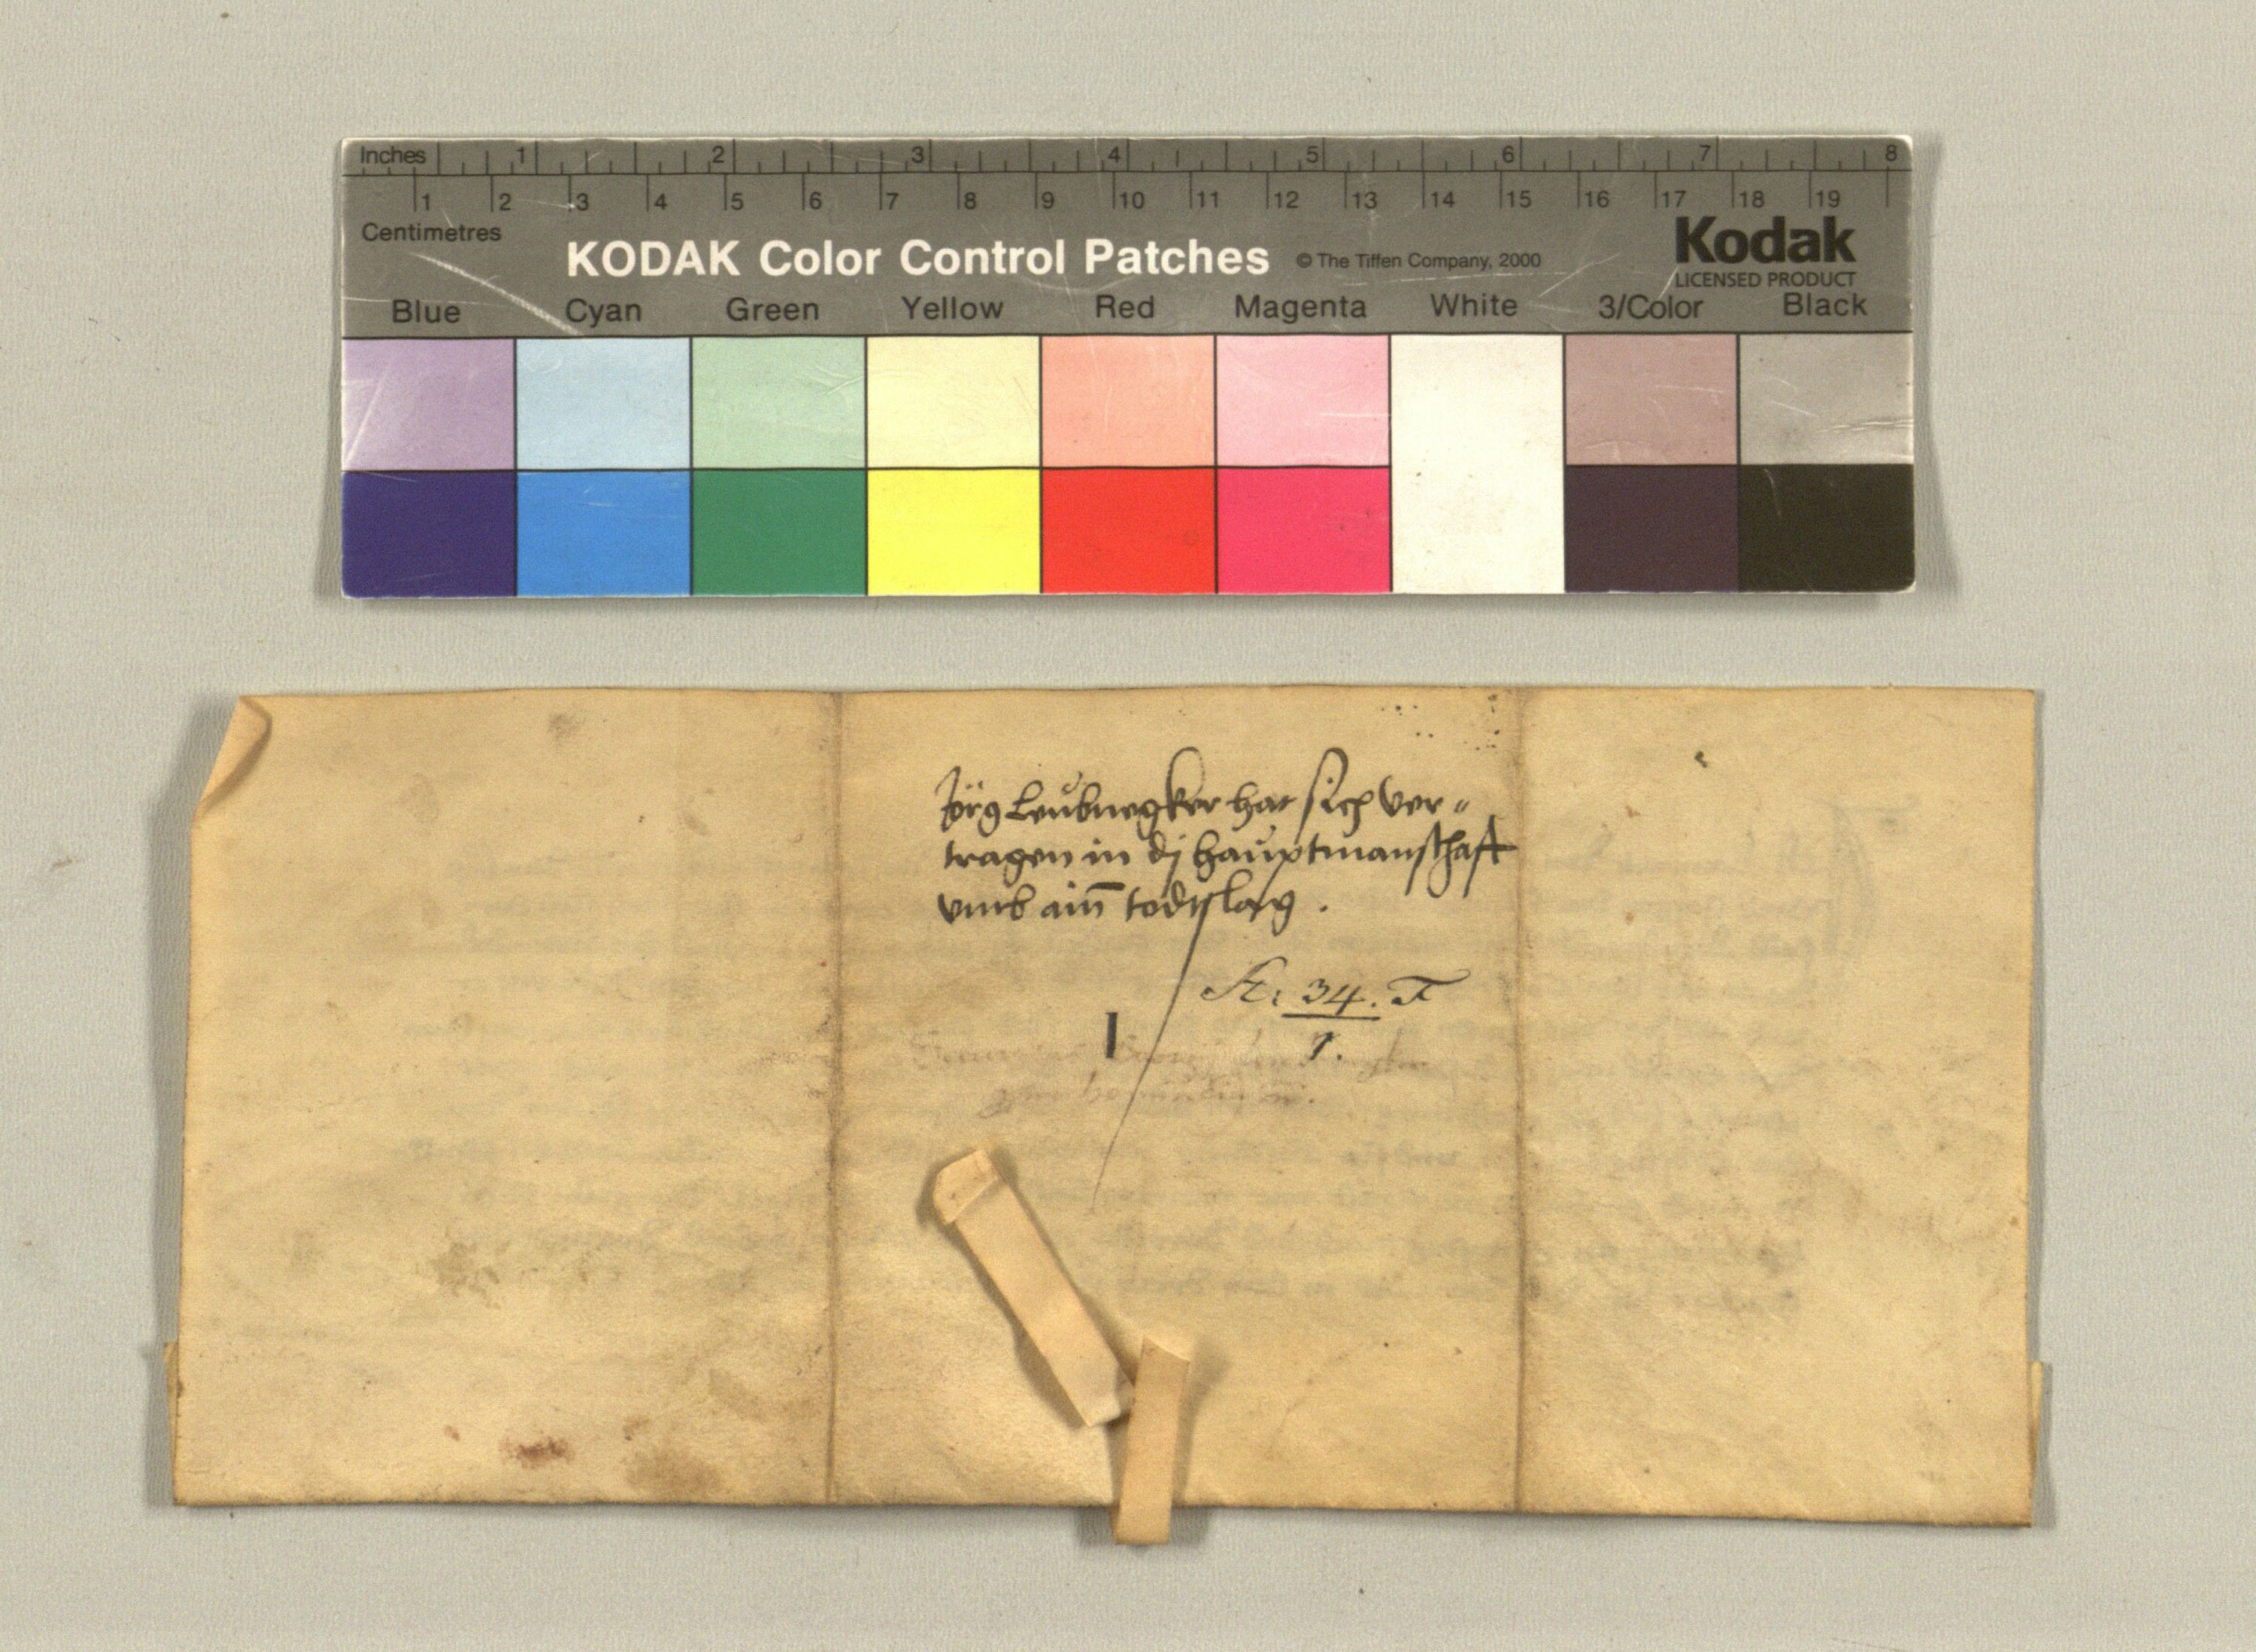 Inches 1 2 3 4 5 6 7 8
1 2 3 4 5 6 7 8 9 10 11 12 13 14 15 16 17 18 19
Centimetres
KODAK Color Control Patches © The Tiffen Company, 2000 Kodak
LICENSED PRODUCT
Blue Cyan Green Yellow Red Magenta White 3/Color Black
Jörg Leubnegker hat sich ver„
tragen in dj haŭptmanschafft
vmb ain̄ todtslag .
34.
I 1.